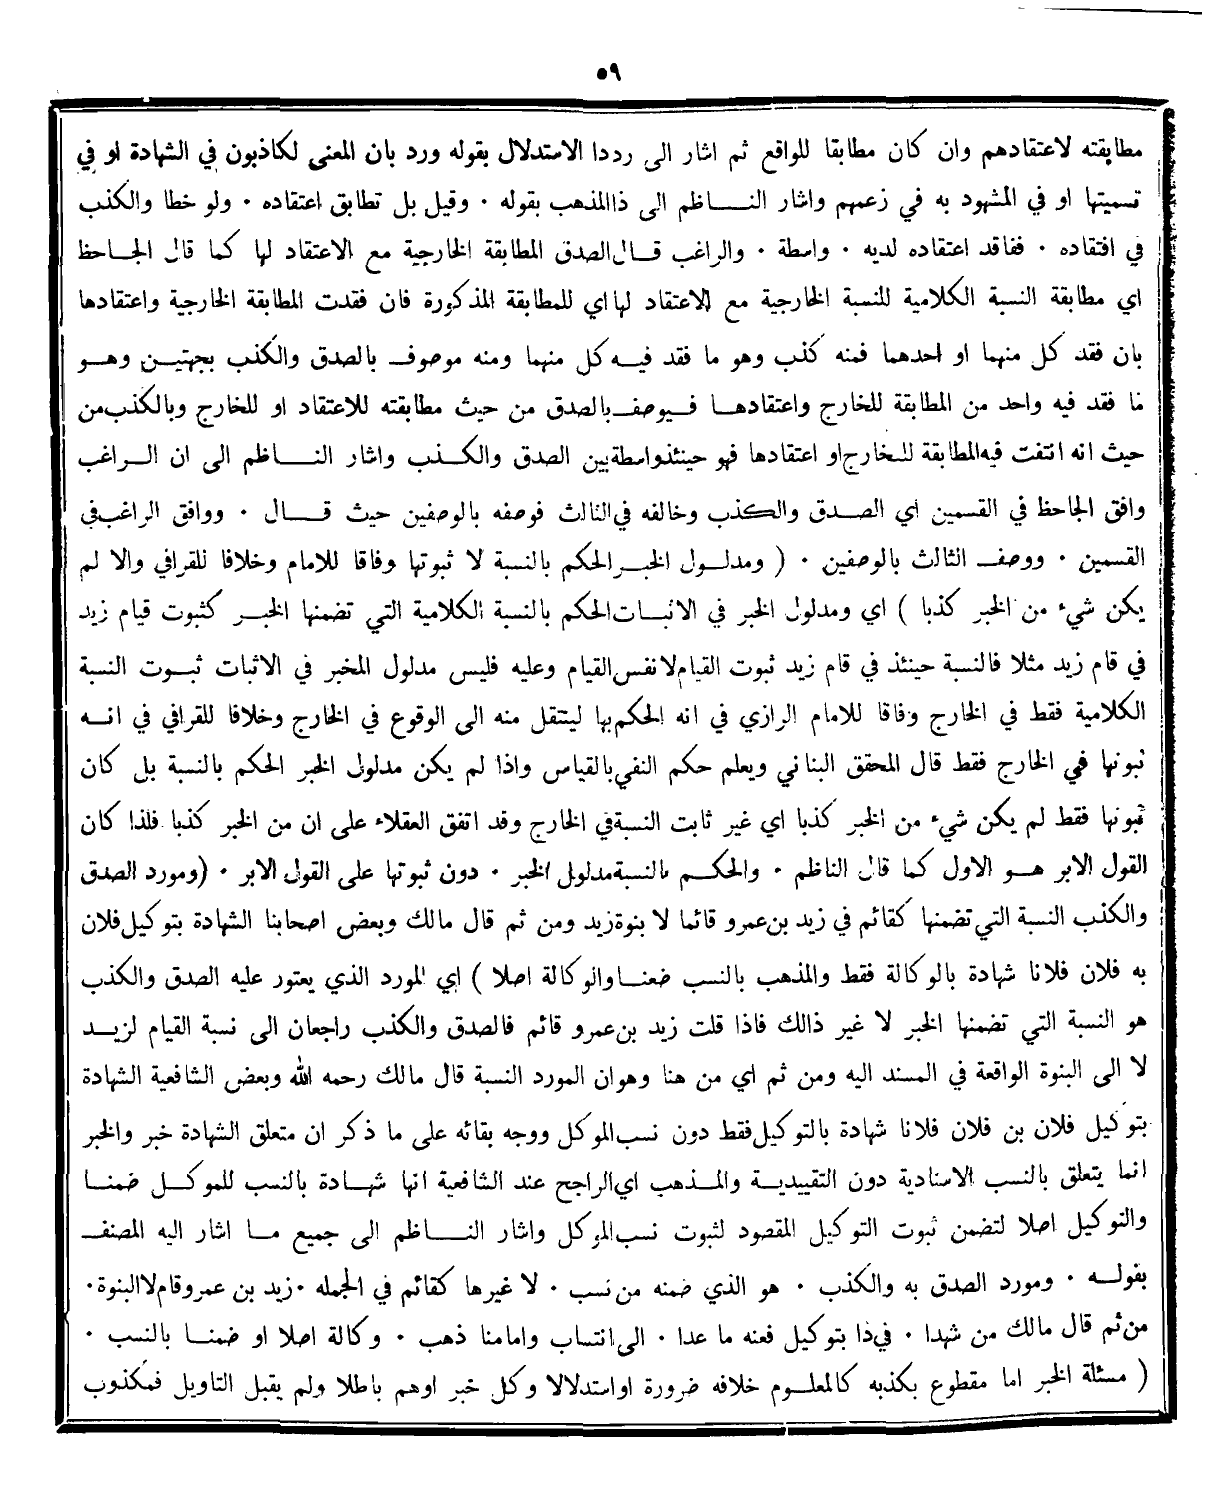 ٥٩
مطابقته لاعتقادهم وان كان مطابقا للواقع ثم اشار الى رددا الاستدلال بقوله ورد بان المعنى لكاذبون في الشهادة او في
تسميتها او في المشهود به في زعمهم واشار النـــاظم الى ذاالمذهب بقوله ٠ وقيل بل تطابق اعتقاده ٠ ولو خطا والكذب
في افتقاده ٠ ففاقد اعتقاده لديه ٠ واسطة ٠ والراغب قـال الصدق المطابقة الخارجية مع الاعتقاد لها كما قال الجـاحظ
اي مطابقة النسبة الكلامية للنسبة الخارجية مع الاعتقاد لها اي للمطابقة المذكورة فان فقدت المطابقة الخارجية واعتقادها
بان فقد كل منهما او احدهما فمنه كذب وهو ما فقد فيـه كل منهما ومنه موصوف بالصدق والكذب بجهتيـن وهـو
ما فقد فيه واحد من المطابقة للخارج واعتقادهـا فـيوصف بالصدق من حيث مطابقته للاعتقاد او للخارج وبالكذب من
حيث انه انتفت فيه المطابقة للخارج او اعتقادها فهو حينئذ واسطة بين الصدق والكـذب واشار النـــاظم الى ان الـراغب
وافق الجاحظ في القسمين اي الصـدق والكذب وخالفه في الثالث فوصفه بالوصفين حيث قـــال ٠ ووافق الراغب في
القسمين ٠ ووصف الثالث بالوصفين ٠ ( ومدلـول الخبـر الحكم بالنسبة لا ثبوتها وفاقا للامام وخلافا للقرافي والا لم
يكن شيء من الخبر كذبا ) اي ومدلول الخبر في الاثبـات الحكم بالنسبة الكلامية التي تضمنها الخبـر كثبوت قيام زيد
في قام زيد مثلا فالنسبة حينئذ في قام زيد ثبوت القيام لا نفس القيام وعليه فليس مدلول المخبر في الاثبات ثبـوت النسبة
الكلامية فقط في الخارج وفاقا للامام الرازي في انه الحكم بها لينتقل منه الى الوقوع في الخارج وخلافا للقرافي في انـه
ثبوتها في الخارج فقط قال المحقق البناني ويعلم حكم النفي بالقياس واذا لم يكن مدلول الخبر الحكم بالنسبة بل كان
ثبوتها فقط لم يكن شيء من الخبر كذبا اي غير ثابت النسبة في الخارج وقد اتفق العقلاء على ان من الخبر كذبا فلذا كان
القول الابر هـو الاول كما قال الناظم ٠ والحكـم بالنسبة مدلول الخبر ٠ دون ثبوتها على القول الابر ٠ (ومورد الصدق
والكذب النسبة التي تضمنها كقائم في زيد بن عمرو قائما لا بنوة زيد ومن ثم قال مالك وبعض اصحابنا الشهادة بتوكيل فلان
به فلان فلانا شهادة بالوكالة فقط والمذهب بالنسب ضعنـا والوكالة اصلا ) اي المورد الذي يعتور عليه الصدق والكذب
هو النسبة التي تضمنها الخبر لا غير ذالك فاذا قلت زيد بن عمرو قائم فالصدق والكذب راجعان الى نسبة القيام لزيـد
لا الى البنوة الواقعة في المسند اليه ومن ثم اي من هنا وهوان المورد النسبة قال مالك رحمه الله وبعض الشافعية الشهادة
بتوكيل فلان بن فلان فلانا شهادة بالتوكيل فقط دون نسب الموكل ووجه بقائه على ما ذكر ان متعلق الشهادة خبر والخبر
انما يتعلق بالنسب الاسنادية دون التقييديـة والمـذهب اي الراجح عند الشافعية انها شهـادة بالنسب للموكـل ضمنـا
والتوكيل اصلا لتضمن ثبوت التوكيل المقصود لثبوت نسب الموكل واشار النـــاظم الى جميع مـا اشار اليه المصنف
بقولـه ٠ ومورد الصدق به والكذب ٠ هو الذي ضمنه من نسب ٠ لا غيرها كقائم في الجمله ٠ زيد بن عمرو قام لا البنوة ٠
من ثم قال مالك من شهدا ٠ في ذا بتوكيل فعنه ما عدا ٠ الى انتساب وامامنا ذهب ٠ وكالة اصلا او ضمنـا بالنسب ٠
( مسئلة الخبر اما مقطوع بكذبه كالمعلـوم خلافه ضرورة او استدلالا وكل خبر اوهم باطلا ولم يقبل التاويل فمكذوب